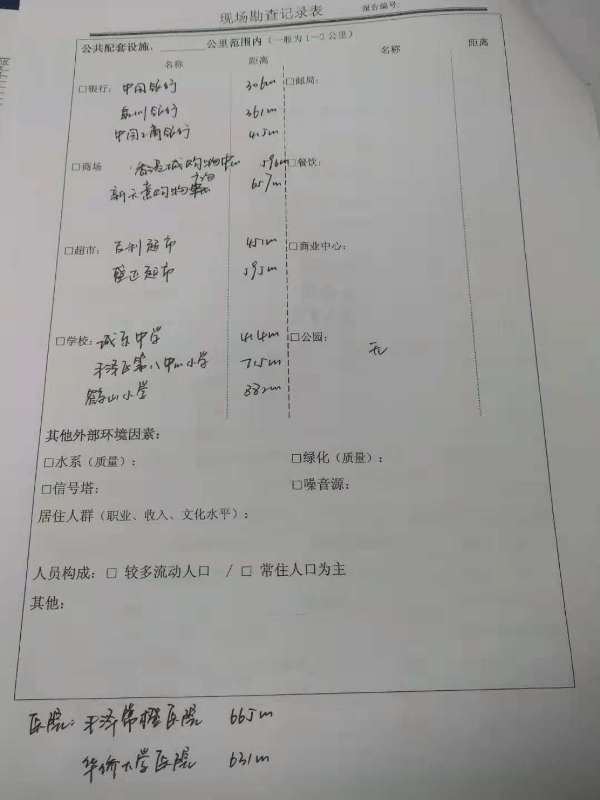 现场勘查记录表 报告编号
公共配套设施、 公里范围内（一般为1-2公里）
名称 距离 名称 距离
□银行：中国银行 306m □邮局：
泉州银行 361m
中国工商银行 415m
□商场 香港城购物中心 596m □餐饮：
新天 购物 657m
□超市： 超市 451m □商业中心：
超市 595m
□学校：城东中学 414m □公园：无
第八中心小学 715m
鹤山小学 882m
其他外部环境因素：
□水系（质量）： □绿化（质量）：
□信号塔： □噪音源：
居住人群（职业、收入、文化水平）：
人员构成：□ 较多流动人口 / □ 常住人口为主
其他：
医院： 医院 665m
华侨大学医院 631m